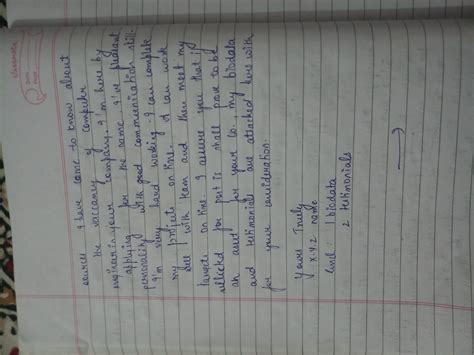 sources I have come to know about
the vaccancy of computer
engineer in your company. I'm here by
applying for the same I've pleasant
personality with good communication skill.
I'm very hard working. I can complete
my projects on time. I can work
well with team and then meet my
targets on time I assure you that if
selected for part is shall prove to be
an asset for your co, my biodata
and testimonials are attached here with
for your consideration.
Yours Truly
x.y.z name
Encl: 1 biodata
2 testimonials